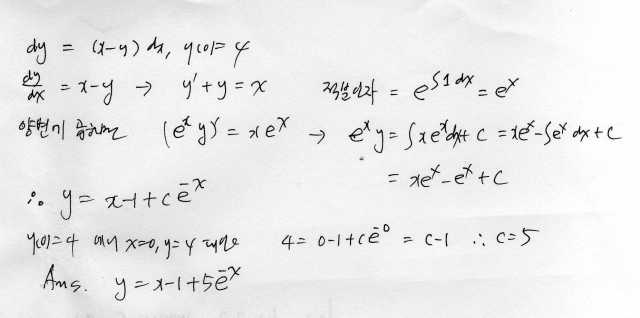 dy = (x-y) dx, y(0)=4
dy/dx = x-y → y'+y=x 적분인자 = e^∫1dx = e^x
양변에 곱하면 (e^x y)' = xe^x → e^x y = ∫xe^x dx + c = xe^x - ∫e^x dx + c
= xe^x - e^x + c
∴ y = x-1+ce^-x
y(0)=4 에서 x=0, y=4 4 = 0-1+ce^-0 = c-1 ∴ c=5
Ans. y = x-1+5e^-x